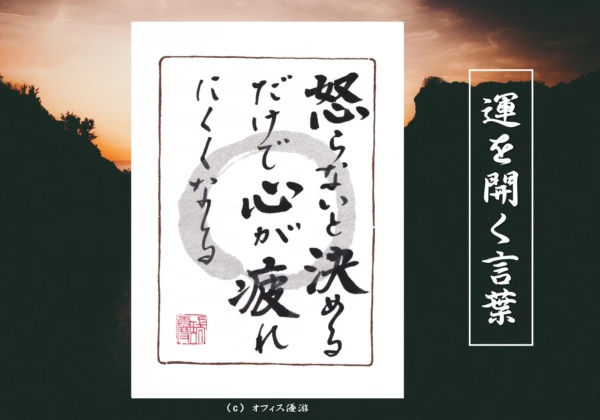 運を開く言葉
怒らないと決める
だけで心が疲れ
にくくなる
(C) オフィス優游